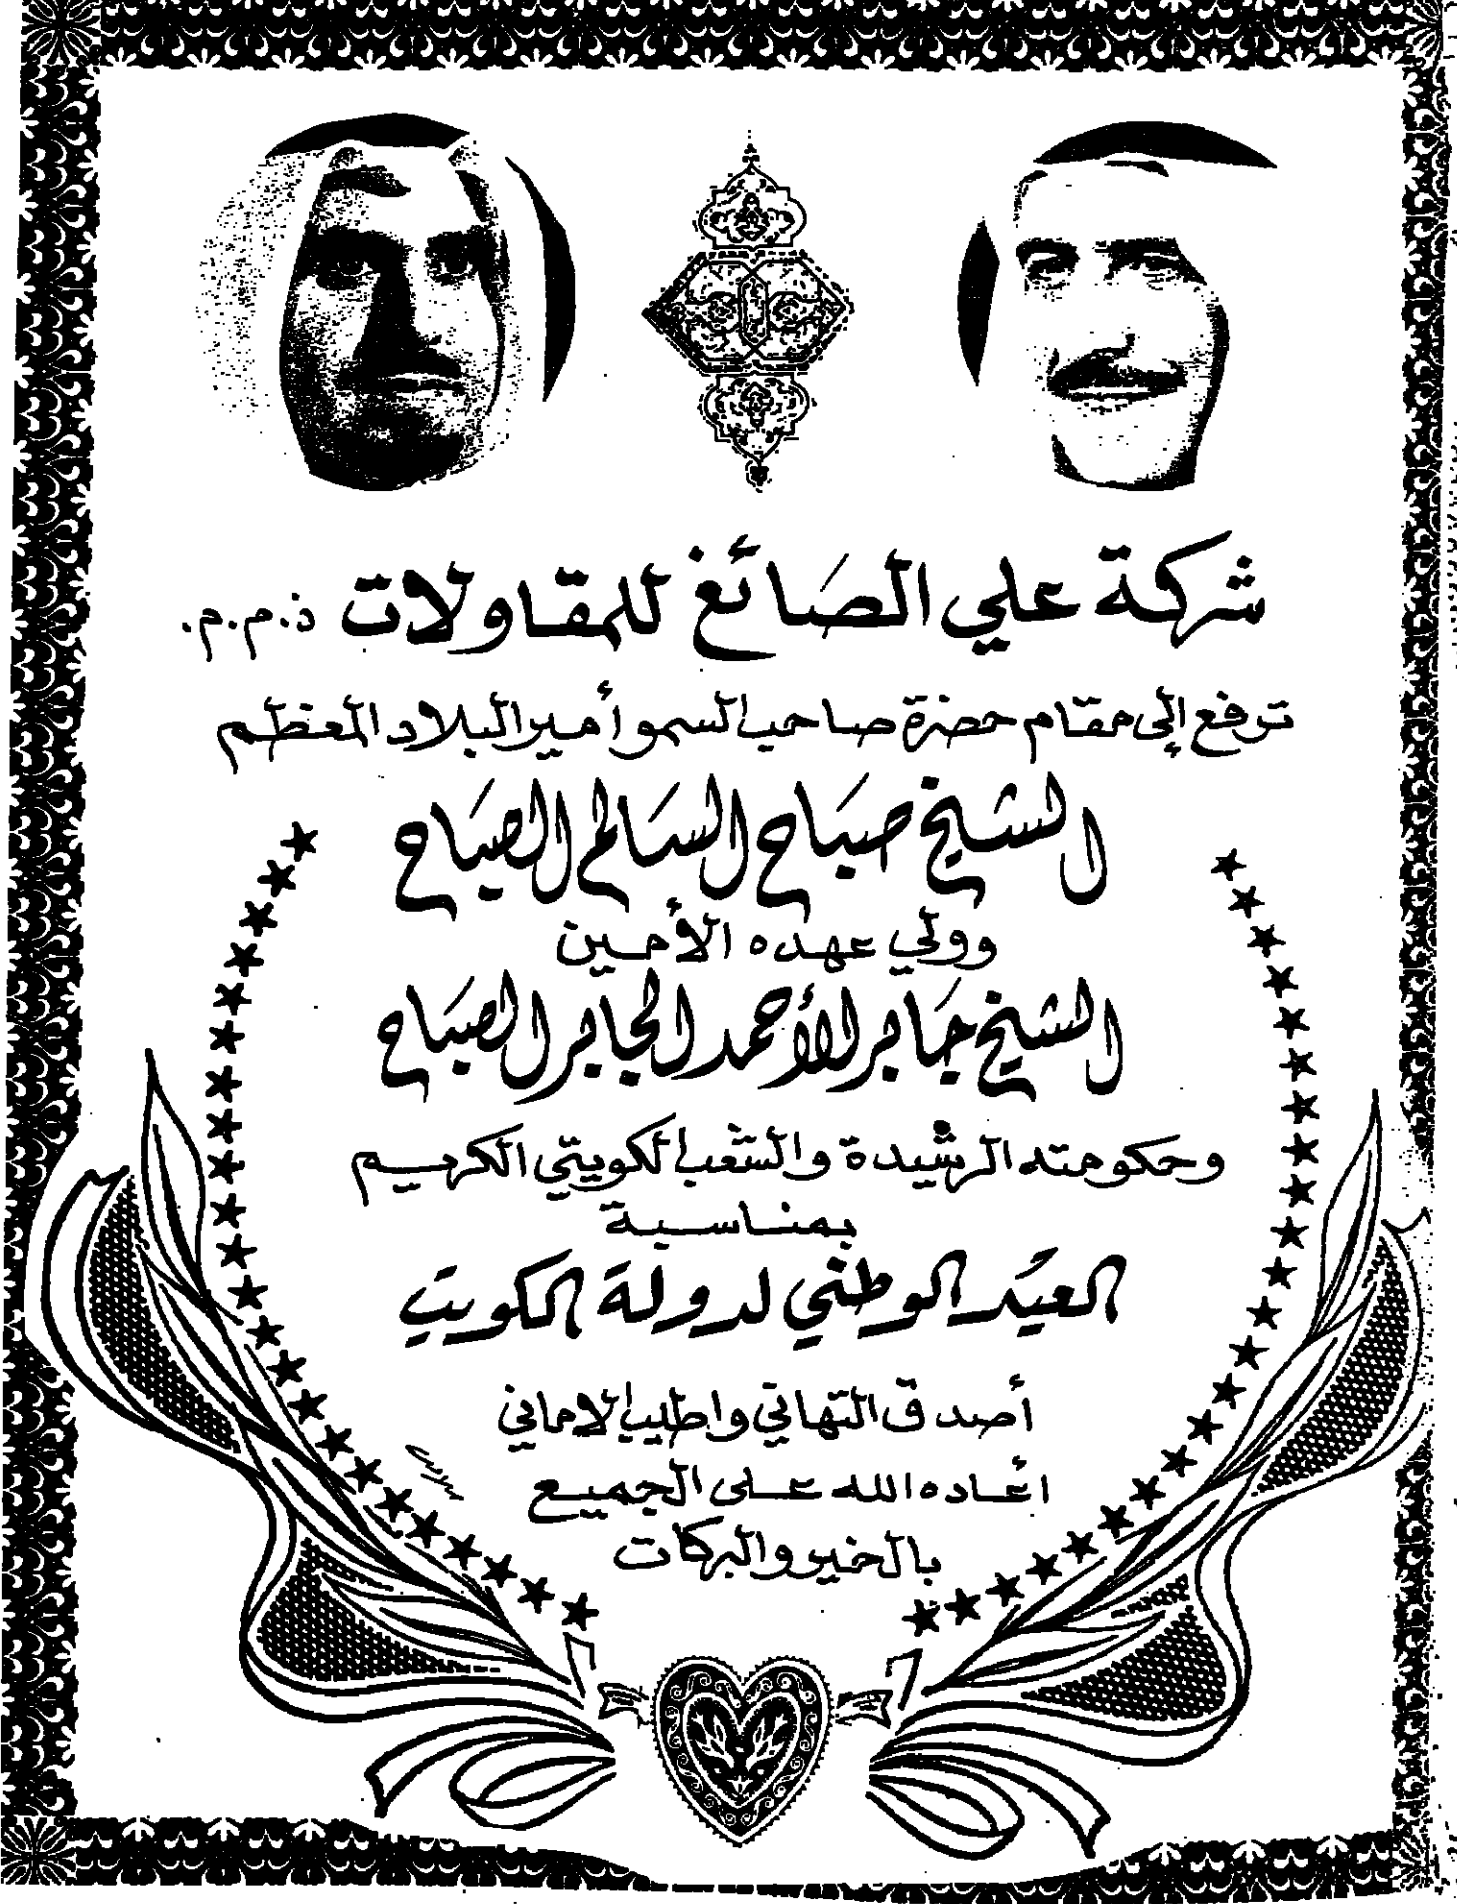 شركة علي الصائغ للمقاولات ذ.م.م.
ترفع إلى مقام حضرة صاحب السمو أمير البلاد المعظم
الشيخ صباح السالم الصباح
وولي عهده الأمين
الشيخ جابر الأحمد الجابر الصباح
وحكومته الرشيدة والشعب الكويتي الكريم
بمناسبة
العيد الوطني لدولة الكويت
أصدق التهاني واطيب الاماني
أعاده الله على الجميع
بالخير والبركات